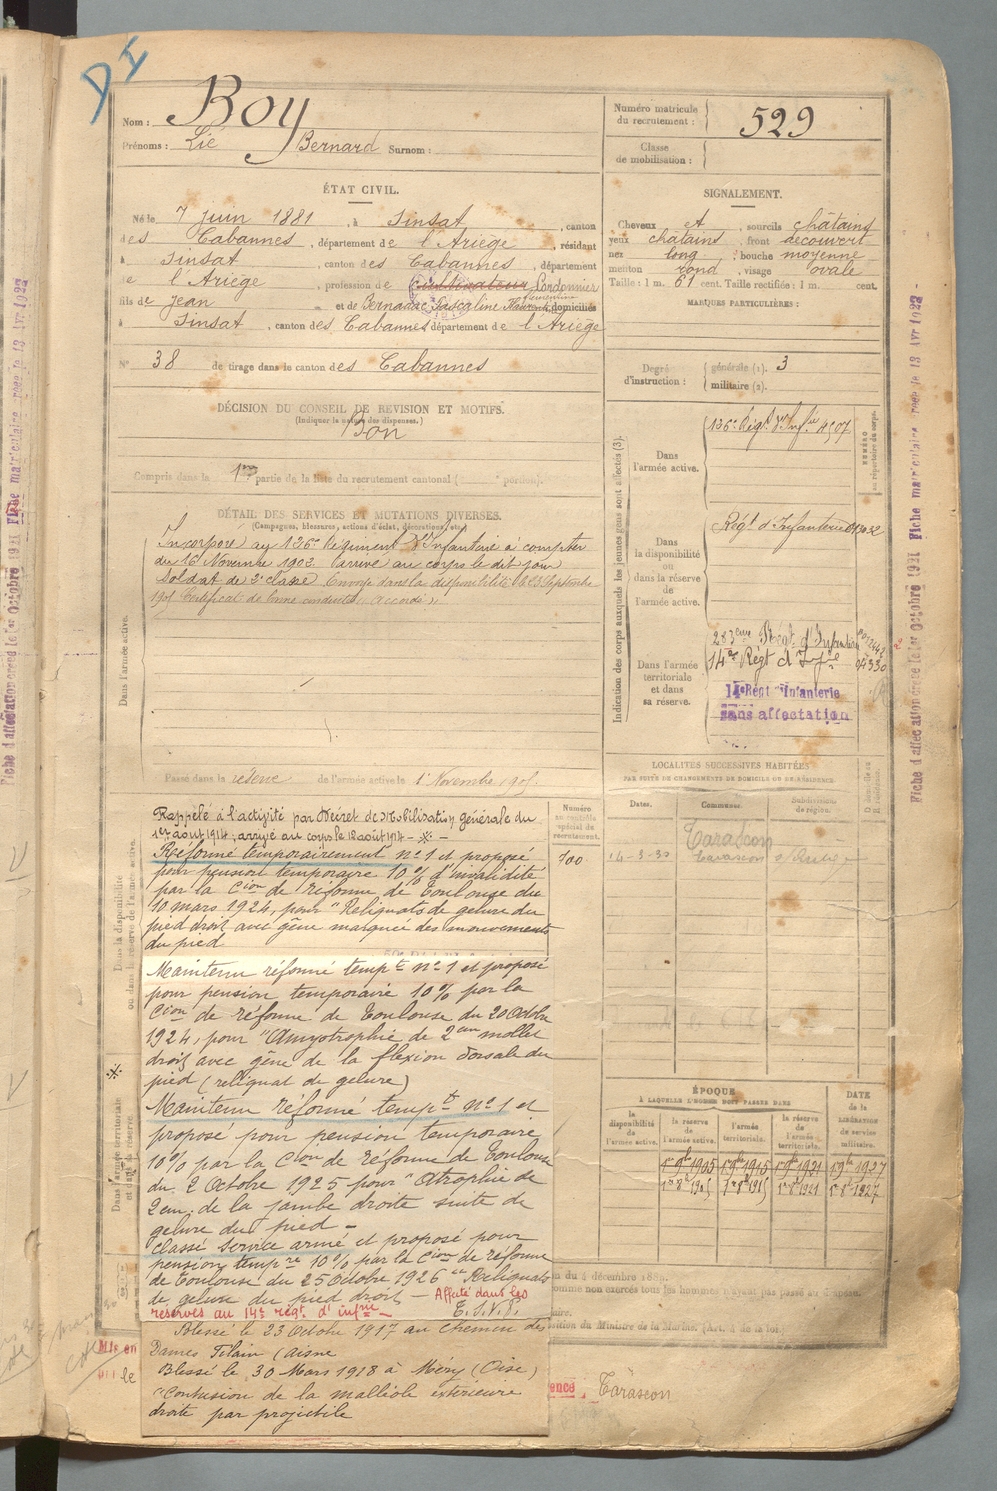 DI
Nom : Boy
Prénoms : Lié Bernard Surnom :
Numéro matricule du recrutement : 529
Classe de mobilisation :
ÉTAT CIVIL.
Né le 7 juin 1881, à Sinsat, canton
des Cabannes, département de l'Ariège, résidant
à Sinsat, canton des Cabannes, département
de l'Ariège, profession de cultivateur Cordonnier
fils de Jean et de Bernadac Pascaline Clémentine domiciliés
à Sinsat, canton des Cabannes département de l'Ariège
N° 38 de tirage dans le canton des Cabannes
SIGNALEMENT.
Cheveux et, sourcils châtains
yeux châtains, front découvert
nez long, bouche moyenne
menton rond, visage ovale
Taille : 1 m. 61 cent. Taille rectifiée : 1 m. cent.
MARQUES PARTICULIÈRES :
Degré d'instruction : générale (1). 3
militaire (2).
DÉCISION DU CONSEIL DE REVISION ET MOTIFS.
(Indiquer la nature des dispenses.)
Bon
Compris dans la 1re partie de la liste du recrutement cantonal ( portion).
DÉTAIL DES SERVICES ET MUTATIONS DIVERSES.
(Campagnes, blessures, actions d'éclat, décorations, etc.)
Dans l'armée active.
Incorporé au 126e Régiment d'Infanterie à compter
du 16 Novembre 1902. Arrivé au corps le dit jour
Soldat de 2e classe. Envoyé dans la disponibilité le 23 Septembre
1905 Certificat de bonne conduite "Accordé".
Passé dans la réserve de l'armée active le 1er Novembre 1905
Indication des corps auxquels les jeunes gens sont affectés (3).
NUMÉRO au répertoire du corps.
Dans l'armée active.
126e Régt d'Infie 4507
Dans la disponibilité ou dans la réserve de l'armée active.
Régt d'Infanterie
Dans l'armée territoriale et dans sa réserve.
283eme Régt d'Infanterie
14e Régt d'Infie 04330
14e Régt Infanterie
sans affectation
Fiche d'affectation créée le 1er Octobre 1921 Fiche matriculaire créée le 13 Avr 1922
LOCALITÉS SUCCESSIVES HABITÉES
PAR SUITE DE CHANGEMENTS DE DOMICILE OU DE RÉSIDENCE.
Dates. Communes. Subdivisions de région.
Tarascon
14-3-30 Tarascon s/Ariège
Numéro au contrôle spécial de recrutement.
700
Dans la disponibilité ou dans la réserve de l'armée active.
Rappelé à l'activité par Décret de Mobilisation générale du
1er août 1914, arrivé au corps le 12 août 1914 -※-
Réformé temporairement n° 1 et proposé
pour pension temporaire 10% d'invalidité
par la Cion de réforme de Toulouse du
10 mars 1924, pour "Reliquats de gelure du
pied droit avec gêne marquée des mouvements
du pied
Maintenu réformé tempre n° 1 et proposé
pour pension temporaire 10% par la
Cion de réforme de Toulouse du 20 Octobre
1924, pour "Amyotrophie de 2 cm mollet
droit avec gêne de la flexion dorsale du
pied (reliquat de gelure)
Maintenu réformé tempre n° 1 et
proposé pour pension temporaire
10% par la Cion de réforme de Toulouse
du 2 Octobre 1925 pour "Atrophie de
2 cm. de la jambe droite suite de
gelure du pied -
Classé service armé et proposé pour
pension tempre 10% par la Cion de réforme
de Toulouse du 25 Octobre 1926 "Reliquats
de gelure du pied droit - Affecté dans les
réserves au 14e régt d'infie - E.S.V.P.
Blessé le 23 Octobre 1917 au Chemin des
Dames Filain (Aisne
Blessé le 30 Mars 1918 à Méry (Oise)
"Contusion de la malléole extérieure
droite par projectile
Dans l'armée territoriale et dans sa réserve.
ÉPOQUE
À LAQUELLE L'HOMME DOIT PASSER DANS
la disponibilité de l'armée active. la réserve de l'armée active. l'armée territoriale. la réserve de l'armée territoriale. DATE de la LIBÉRATION du service militaire.
1er 9bre 1905 1er 9bre 1915 1er 9bre 1921 1er 9bre 1927
1er 8bre 1905 1er 8bre 1915 1er 8bre 1921 1er 8bre 1927
on du 4 décembre 1889.
comme non exercés tous les hommes n'ayant pas passé au drapeau.
position du Ministre de la Marine. (Art. 4 de la loi
Mis en
le
ence Tarascon